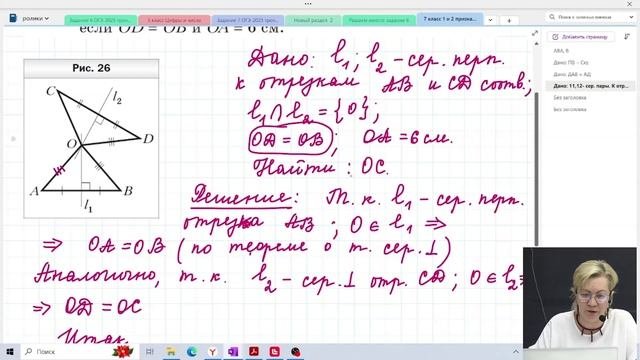 ролики
Задание 6 ОГЭ 2025 трен...
5 класс Цифры и числа
Задание 7 ОГЭ 2025 трен...
Новый раздел 2
Решаем вместе задание 6
7 класс 1 и 2 призна...
Добавить страницу
АВА, В
Дано: ПВ - Ско
Дано: ДАВ = АД
Дано: 11,12- сер. перы. К отр...
Без заголовка
Без заголовка
если OD = OB и OA = 6 см.
Рис. 26
C
l₂
D
O
A
B
l₁
Дано: l₁; l₂ - сер. перп.
к отрезкам AB и CD соотв;
l₁ ∩ l₂ = {O};
OD = OB; OA = 6 см.
Найти: OC.
Решение: Т. к. l₁ - сер. перп.
отрезка AB; O ∈ l₁ ⇒
⇒ OA = OB (по теореме о т. сер. ⊥)
Аналогично, т. к. l₂ - сер. ⊥ отр. CD; O ∈ l₂ ⇒
⇒ OD = OC
Итак,
Поиск